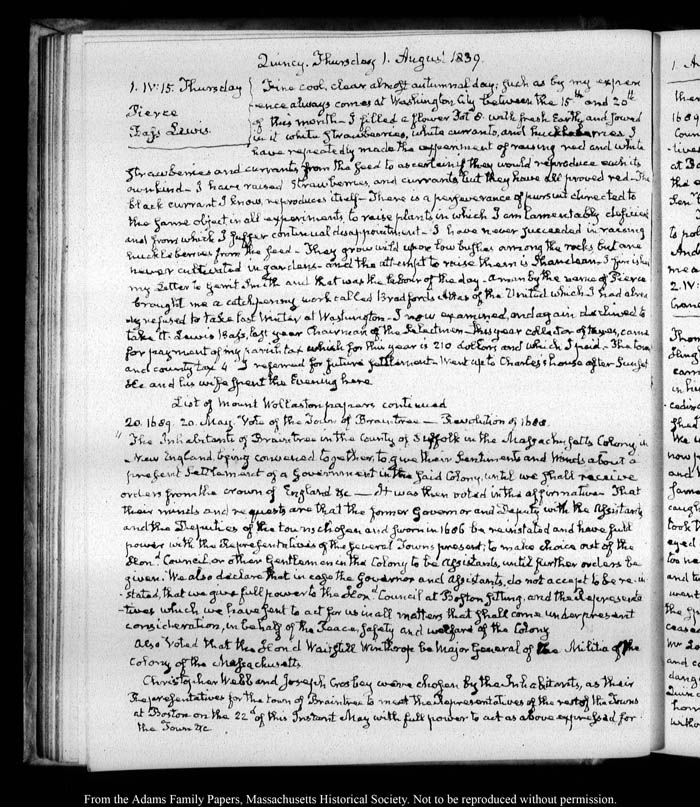 Quincy. Thursday 1. August 1839.
1. IV:15. Thursday
Pierce
Bass Lewis
Fine cool, clear almost autumnal day; such as by my experi
ence always comes at Washington City between the 15th and 20th
of this month – I filled a flower Pot 8. with fresh Earth, and sowed
in it white strawberries, white currants, and huckleberries. I
have repeatedly made the experiment of raising red and white
strawberries and currants from the seed to ascertain if they would reproduce each its
own kind – I have raised strawberries, and currants but they have all proved red – The
black currant I know, reproduces itself – There is a perseverance of pursuit directed to
the same object in all experiments, to raise plants, in which I am lamentably deficient
and from which I suffer continual disappointment – I have never succeeded in raising
huckleberries from the seed – They grow wild upon low bushes among the rocks but are
never cultivated in gardens – and the attempt to raise them is Shandean – I finished
my Letter to Gerrit Smith and that was the labour of the day – a man by the name of Pierce
brought me a catchpenny work called Bradford's Atlas of the United which I had alrea
dy refused to take last Winter at Washington – I now examined, and again declined to
take it. Lewis Bass, last year Chairman of the Selectmen – this year collector of taxes, came
for payment of my parish tax which for this year is 210 dollars and which I paid – The town
and county tax I referred for future settlement – Went up to Charles's house after Sunset
He and his wife spent the Evening here
List of Mount Wollaston papers continued
20. 1689. 20. May. Vote of the Town of Braintree – Revolution of 1688.
"The Inhabitants of Braintree in the County of Suffolk in the Massachusetts Colony, in
New England, being convened together, to give their Sentiments and Minds about a
present Settlement of a Government in the said Colony, until we shall receive
orders from the crown of England &c – It was then voted in the affirmative That
their minds and requests are that the former Governor and Deputy, with the Assistants
and the Deputies of the towns chosen and sworn in 1686 be reinstated and have full
power with the Representatives of the several Towns present; to make choice out of the
Hon.d Council, or other Gentlemen in the Colony to be Assistants, until further orders be
given. We also declare that in case the Governor and Assistants, do not accept to be re-in
stated, that we give full power to the Hon.d Council at Boston sitting, and the Represente
tives which we have sent to act for us in all matters that shall come under present
consideration, in behalf of the Peace, safety and welfare of the Colony
Also Voted that the Hon.d Waitstill Winthrop be Major General of the Militia of the
Colony of the Massachusetts
Christopher Webb and Joseph Crosbey were chosen by the Inhabitants, as their
Representatives for the town of Braintree to meet the Representatives of the rest of the Towns
at Boston on the 22d of this Instant May with full power to act as above expressed for
the Town &c
From the Adams Family Papers, Massachusetts Historical Society. Not to be reproduced without permission.